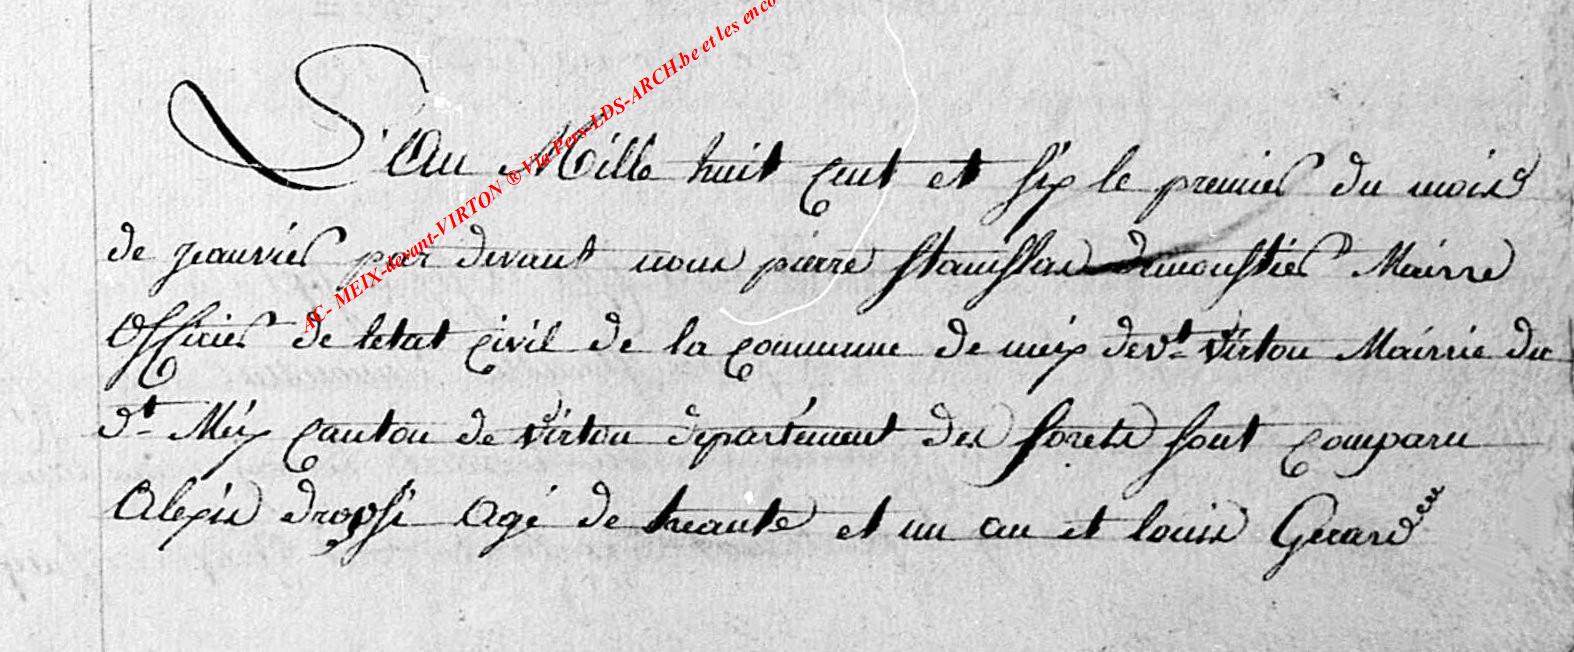 AC- MEIX-devant-VIRTON ® Via Pers-LDS-ARCH.be et les enco
L'an Mille huit cent et six le premier du mois
de jeanvier par devant nous pierre stanislas demoustier Mairre
Officier de letat civil de la commune de meix devt virton Mairrie du
dt Meix canton de virton departement des forets sont comparu
Alexis dropsi agé de treante et un an et louis Gerard